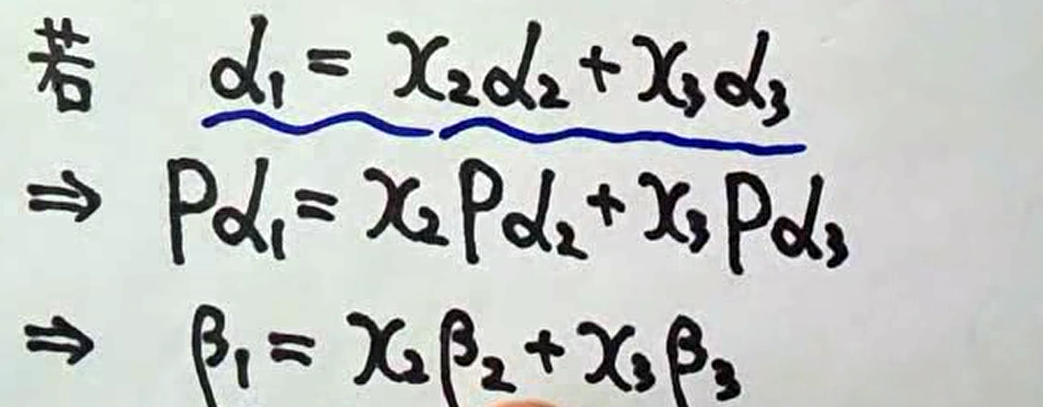 若 α₁ = x₂α₂ + x₃α₃
⇒ Pα₁ = x₂Pα₂ + x₃Pα₃
⇒ β₁ = x₂β₂ + x₃β₃